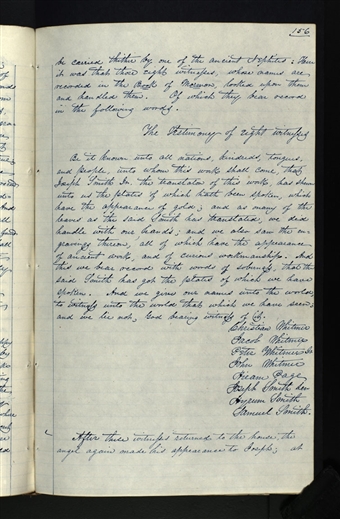 156
be carried thither by one of the ancient Nephites: Here
it was that those eight witnesses, whose names are
recorded in the Book of Mormon, looked upon them
and handled them. Of which they bear record
in the following words.
The Testimony of eight witnesses
Be it known unto all nations, kindreds, tongues,
and people, unto whom this work shall come, that
Joseph Smith Jr. the translator of this work, has shewn
unto us the plates of which hath been spoken, which
have the appearance of gold; and as many of the
leaves as the said Smith has translated, we did
handle with our hands; and we also saw the en-
gravings thereon, all of which have the appearance
of ancient work, and of curious workmanship. And
this we bear record with words of soberness, that the
said Smith has got the plates of which we have
spoken. And we give our names unto the world,
to witness unto the world that which we have seen;
and we lie not, God bearing witness of it.
Christian Whitmer
Jacob Whitmer
Peter Whitmer Jr.
John Whitmer
Hiram Page
Joseph Smith Sen
Hyrum Smith
Samuel Smith.
After these witnesses returned to the house, the
angel again made his appearance to Joseph; at